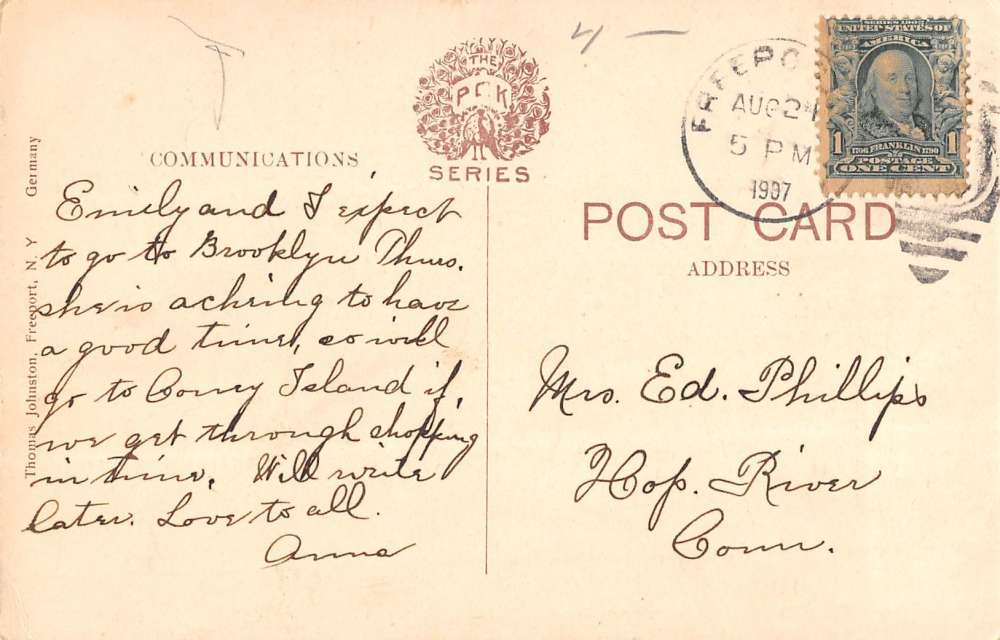 4 —
THE
PCK
SERIES
FREEPO
AUG 24
5 PM
1907
SERIES 1902
UNITED STATES OF
AMERICA
1 1
1706 FRANKLIN 1790
POSTAGE
ONE CENT
POST CARD
COMMUNICATIONS
ADDRESS
Thomas Johnston, Freeport, N. Y Germany
Emily and I expect
to go to Brooklyn Thurs.
she is aching to have
a good time, so will
go to Coney Island if,
we get through shopping
in time. Will write
later. Love to all.
Anna
Mrs. Ed. Phillips
Hop. River
Conn.